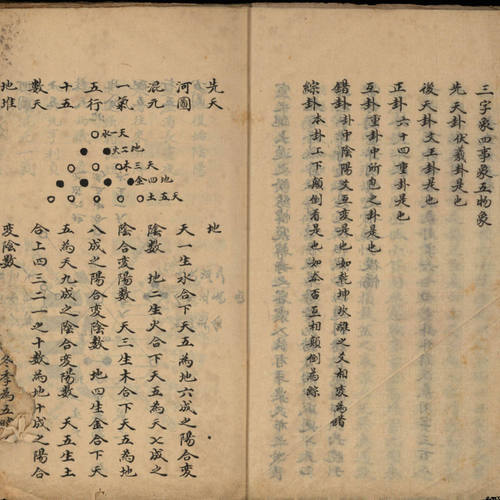 三字象四事象五物象
先天卦伏羲卦是也
後天卦文王卦是也
正卦六十四重卦是也
互卦重卦中所包之卦是也
錯卦卦中陰陽爻互变是也如乾坤坎離之爻相变為錯
綜卦本卦上下顛倒看是也如泰否互相顛倒為綜
先天 地
河圖 天一生水合下天五為地六成之陽合变
混九 陰数 地二生火合下天五為天七成之
一氣 陰合变陽数 天三生木合下天五為地
五行 八成之陽合变陰数 地四生金合下天
十五 五為天九成之陰合变陽数 天五生土
数天 合上四三二一之十数為地十成之陽合
地堆 变陰数 冬季為五
水一天
火二地
木三天
金四地
土五天